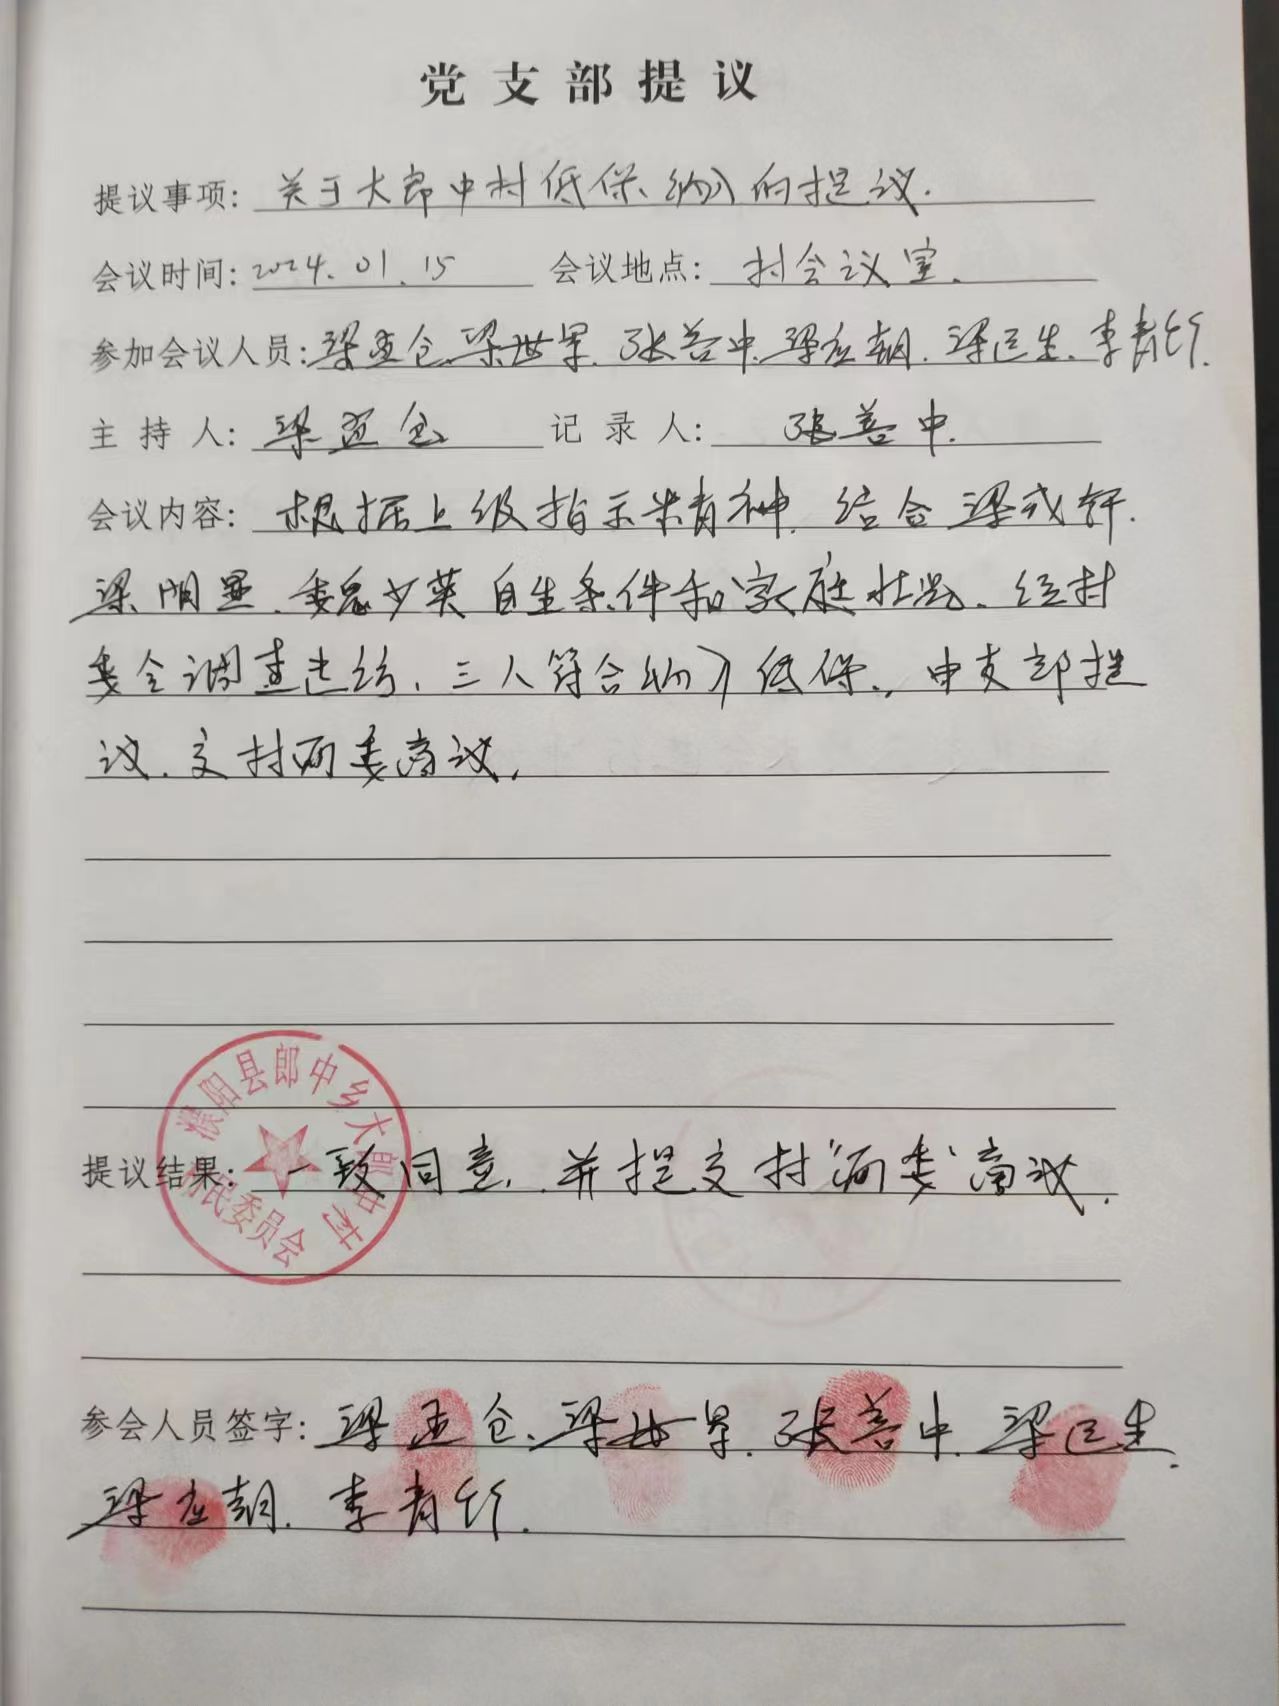 党支部提议
提议事项: 关于大郎中村低保纳入的提议.
会议时间: 2024.01.15 会议地点: 村会议室.
参加会议人员: 梁亚仓.梁世军.张善中.梁应朝.梁巨生.李青竹.
主持人: 梁亚仓 记录人: 张善中.
会议内容: 根据上级指示精神. 结合梁成轩.
梁明显.魏少英自生条件和家庭状况.经村
委会调查走访.三人符合纳入低保.,由支部提
议.交村两委商议,
濮阳县郎中乡大郎中村
村民委员会
提议结果: 一致同意,并提交村"两委"商议.
参会人员签字: 梁亚仓.梁世军.张善中.梁巨生.
梁应朝.李青竹.